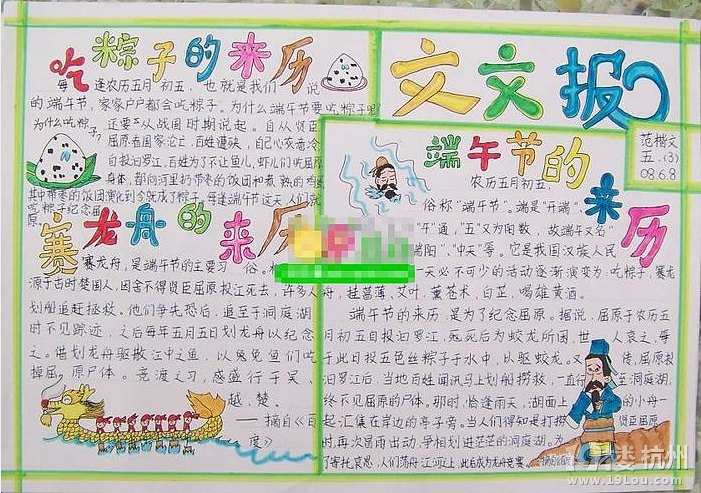 吃粽子的来历
每逢农历五月初五，也就是我们 说
的端午节，家家户户都会吃粽子。为什么端午节要吃粽子呢
为什么吃粽子?
还要从战国时期说起。自从贤臣
屈原看国家沦亡，百姓遭殃，自己
自投汨罗江，百姓为了不让鱼儿，虾儿们吃屈原
身体，都向河里扔带枣的饭团和煮熟的
其中带枣的饭团演化到今就成了粽子，每逢端午节这天 人们就
吃粽子纪念屈
原。
赛龙舟的来历
赛龙舟，是端午节的主要习 俗。
源于古时楚国人，因舍不得贤臣屈原投江死去，许多人
划船追赶拯救。他们争先恐后，追至于洞庭湖
时不见踪迹，之后每年五月五日划龙舟以纪念
之。借划龙舟驱散江中之鱼，以免鱼们吃
掉屈 原尸体。竞渡之习，感盛行于吴、
越、楚。
——摘自《百
度》
文文报
范楷文
五.(3)
08.6.8
端午节的来历
农历五月初五，
俗称"端午节"。端是"开端"、
"通，"五"又为阳数，故端午又名"
端阳"、"中天"等。它是我国汉族人民
一天必不可少的活动逐渐演变为：吃粽子，赛龙
舟，挂菖蒲、艾叶，薰苍术、白芷，喝雄黄酒。
端午节的来历，是为了纪念屈原。据说，屈原于农历五
月初五自投汨罗江，死后为蛟龙所困，世 人哀之，每
于此日投五色丝粽子于水中，以驱蛟龙。又 传，屈原投
汨罗江后，当地百姓闻讯马上划船捞救，一直行 至洞庭湖，
终不见屈原的尸体。那时，恰逢雨天，湖面上 的小舟一
起汇集在岸边的亭子旁。当人们得知是打捞 贤臣屈原
时，再次冒雨出动，争相划进茫茫的洞庭湖。为
了寄托哀思，人们荡舟江河上，此后成为龙舟竞赛。
19楼 杭州
www.19lou.com